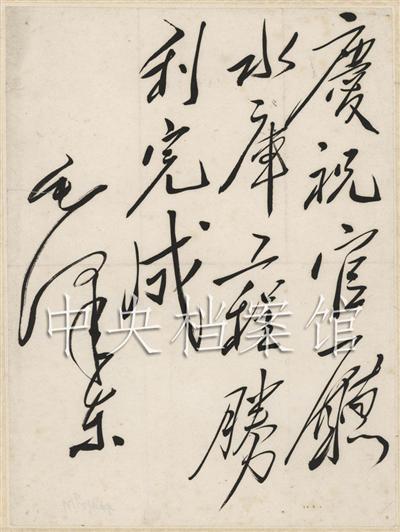 慶祝官厅
水庫工程勝
利完成
毛泽东
中央档案馆